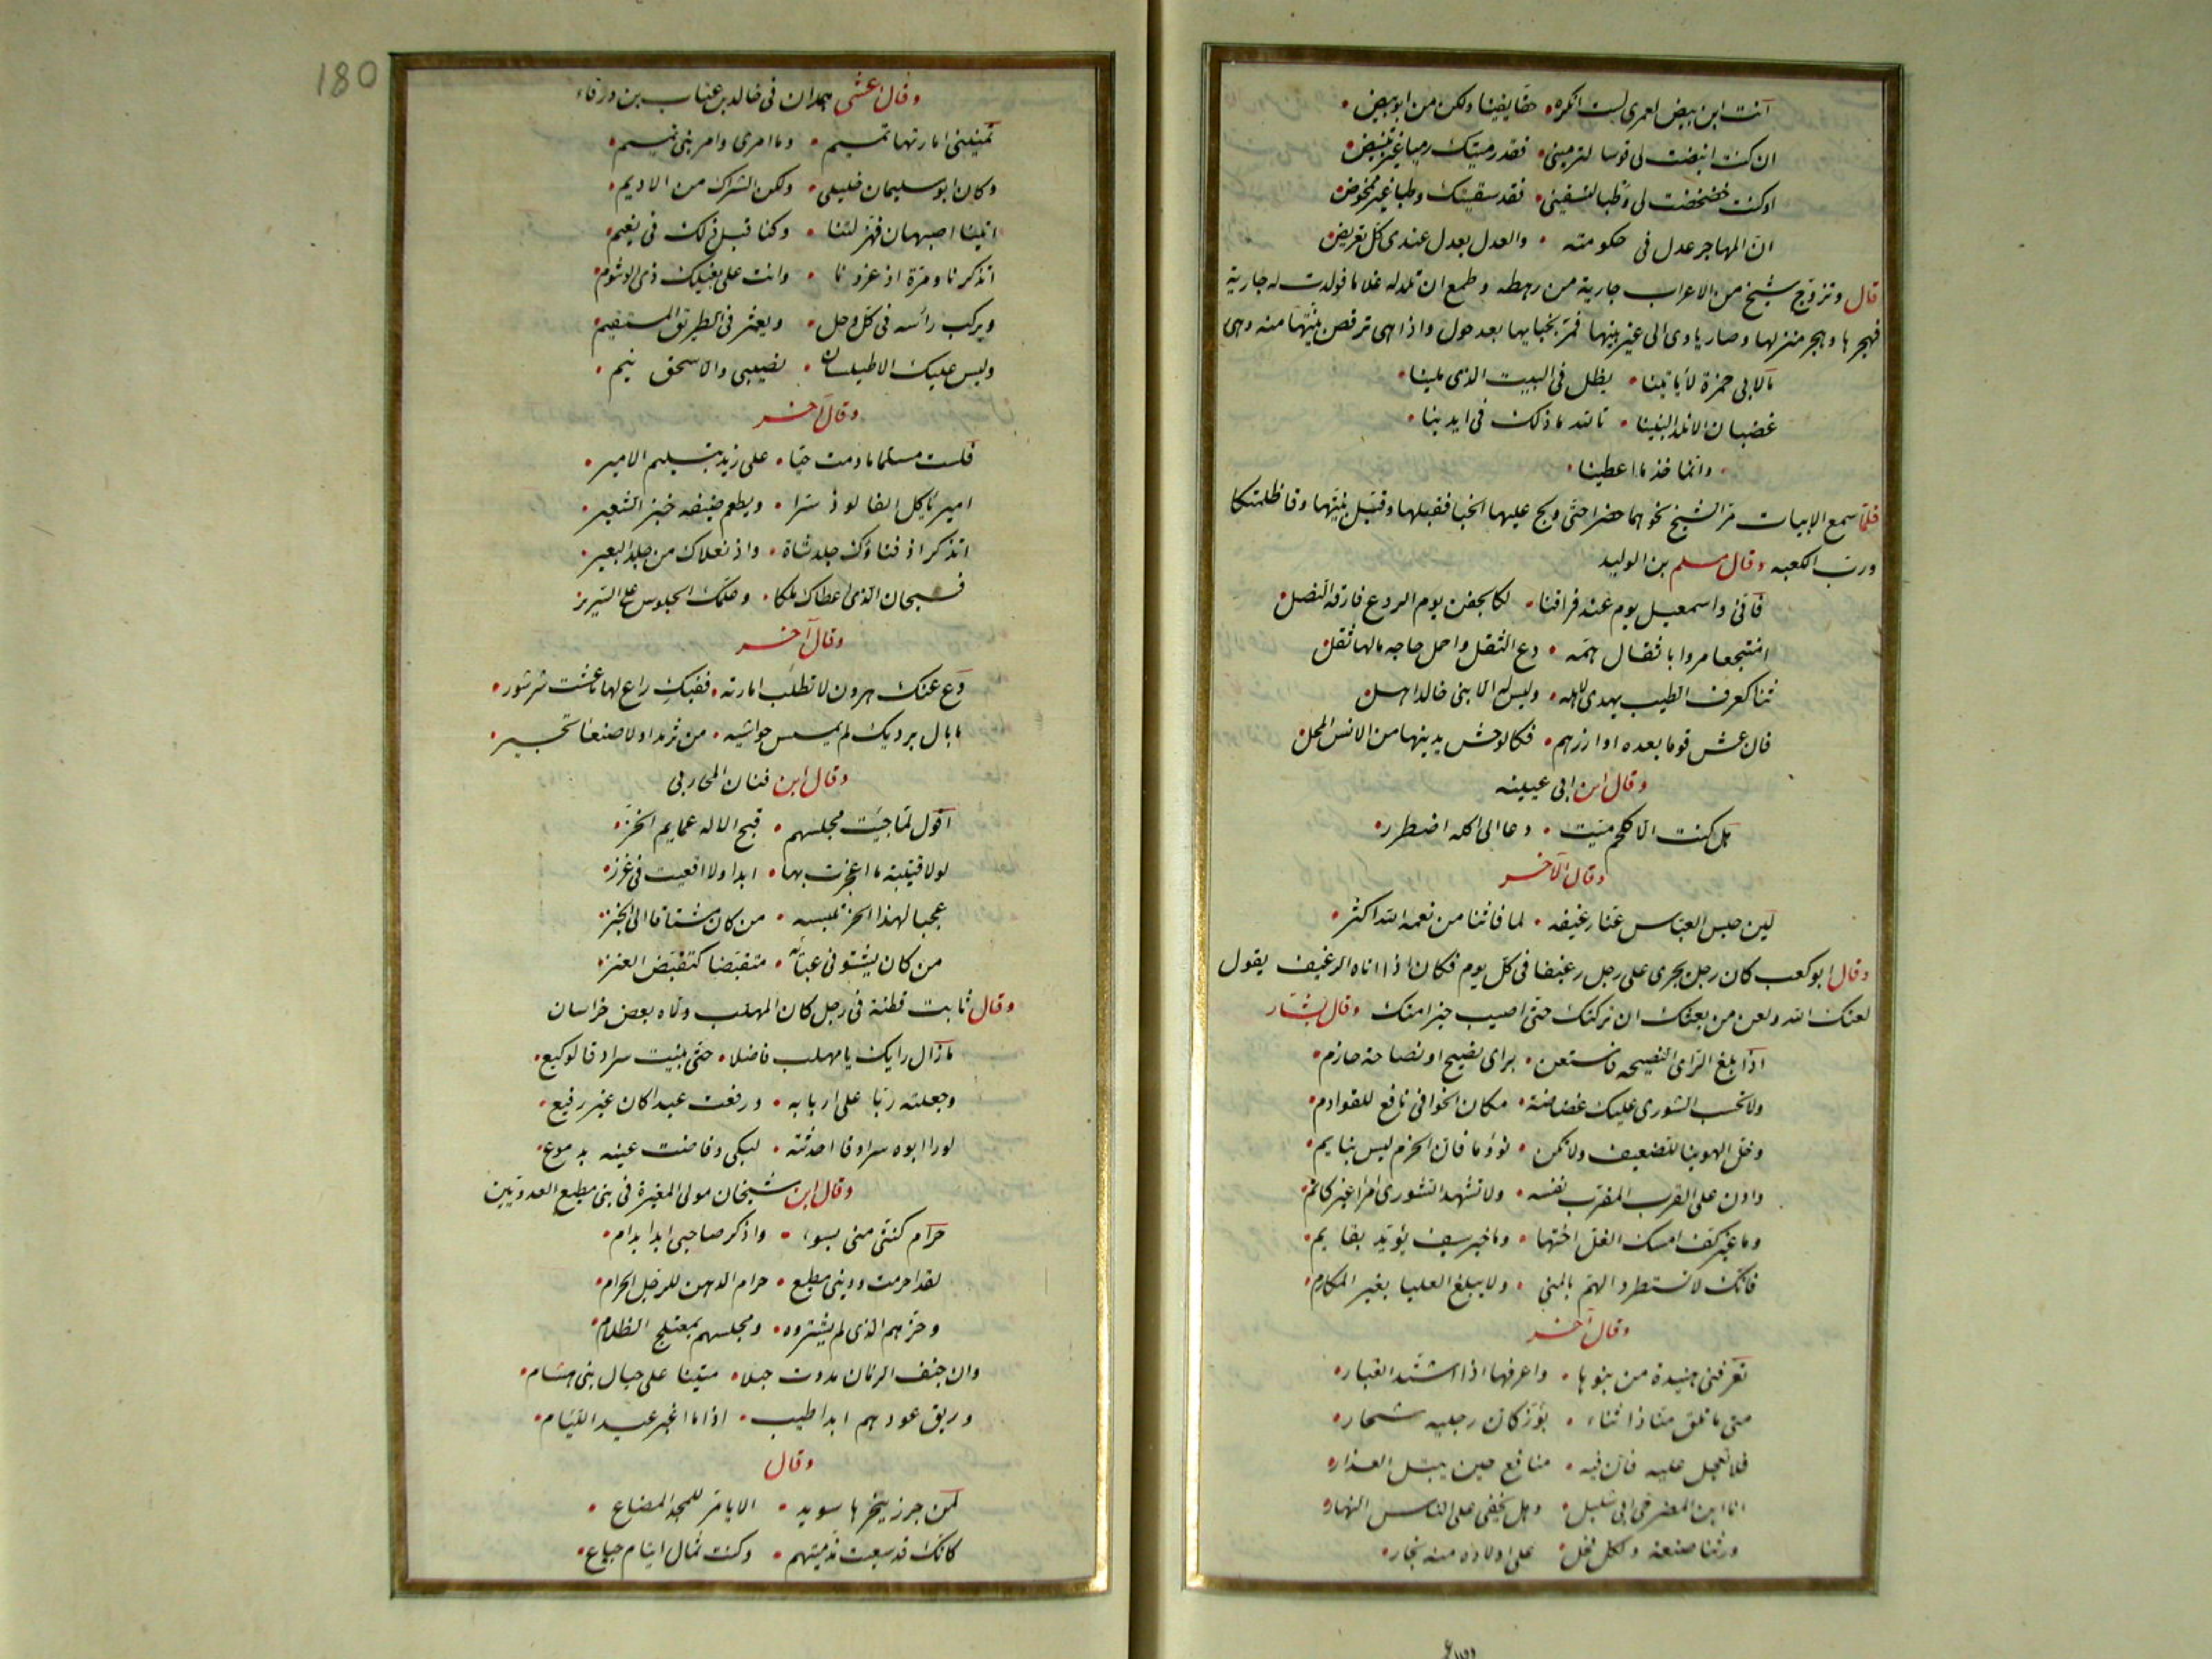 آنت ابن بيض لعمرى لست انكره • حقا يقينا ولكن من ابو بيض •
ان كنت انبضت لى قوسا لترمينى • فقد رميتك رميا غير تنبيض •
او كنت خضخضت لى وطبا لتسقينى • فقد سقيتك وطبا غير ممخوض •
ان المهاجر عدل فى حكومته • والعدل يعدل عندى كل تعريض •
قال وتزوج شيخ من الاعراب جارية من رهطه وطمع ان تلد له غلاما فولدت له جارية
فهجرها وهجر منزلها وصار ياوى الى غير بيتها فمر بخبايها بعد حول واذا هى ترقص بنيتها منه وهى
ما لابى حمزة لا يأتينا • يظل فى البيت الذى يلينا •
غضبان الا نلد البنينا • تالله ما ذلك فى ايدينا •
• وانما ناخذ ما اعطينا •
فلما سمع الابيات مر الشيخ نحوهما حضرا حتى ولج عليها الخبا فقبلها وقبل بنيتها وقا ظلمتكا
ورب الكعبه وقال مسلم بن الوليد
فانى واسمعيل يوم عند فراقنا • لكالجفن يوم الروع فارقه النصل •
امنتجعا مروا باثقال همه • دع الثقل واحمل حاجه مالها ثقل •
ثنا كعرف الطيب يهدى لاهله • وليس له الا بنى خالد اهل •
فان عش قوما بعده او ازرهم • فكالوحش يدينها من الانس المحل •
وقال ابن ابى عيينه
هل كنت الا كلحم ميت • دعا الى اكله اضطرار •
وقال الآخر
لين حبس العباس عنا رغيفه • لما فاتنا من نعمه الله اكثر •
وقال ابو كعب كان رجل يجرى على رجل رغيفا فى كل يوم فكان اذا اتاه الرغيف يقول
لعنك الله ولعن من بعثك ان تركتك حتى اصيب خيرا منك وقال بشار
اذا بلغ الراى النصيحه فاستعن • براى نصيح او نصاحة حازم •
ولا تحسب الشورى عليك غضاضة • مكان الخوافى نافع للقوادم •
وخل الهوينا للضعيف ولا تكن • نؤوما فان الحزم ليس بنايم •
وادن على القرب المقرب نفسه • ولا تشهد الشورى امرا غير كاتم •
وما خير كف امسك الغل اختها • وما خير سيف لم يؤيد بقايم •
فانك لا تستطرد الهم بالمنى • ولا يبلغ العليا بغير المكارم •
وقال آخر
تعرفنى هنيدة من بنوها • واعرفها اذا اشتد الغبار •
متى ما تلق منا ذا ثناء • يؤز كان رجليه شجار •
فلا تعجل عليه فان فيه • منافع حين يبتل العذار •
انا ابن المضرحى ابى شليل • وهل يخفى على الناس النهار •
ورثنا صنعه ولكل فحل • على اولاده منه نجار •
180
وقال عشى همدان فى خالد بن عتاب بن ورقاء
تمنينى امارتها تميم • وما امرى وامر بنى تميم •
وكان ابو سليمان خليلى • ولكن الشراك من الاديم •
اتينا اصبهان فهزلتنا • وكنا قبل ذلك فى نعيم •
اتذكرنا ومرة اذ غزونا • وانت على بغيلك ذى الوشوم •
ويركب رأسه فى كل وحل • ويعثر فى الطريق المستقيم •
وليس عليك الا طيلسان • نصيبى والا سحق نيم •
وقال آخر
فلست مسلما ما دمت حيا • على زيد بتسليم الامير •
امير ياكل الفالوذ سرا • ويطعم ضيفه خبز الشعير •
اتذكر اذ قباؤك جلد شاة • واذ نعلاك من جلد البعير •
فسبحان الذى اعطاك ملكا • وعلمك الجلوس على السرير
وقال آخر
دع عنك مرون لا تطلب امارته • ففيك راع لها ما عشت شرشور •
ما بال برديك لم يمسس حواشيه • من ثرمدا ولا صنعا تحبير •
وقال ابن قنان المحاربى
اقول لما جيت مجلسهم • قبح الاله عمايم الخز •
لولا قتيبة ما اعتجرت بها • ابدا ولا اقعيت فى غرز •
عجبا لهذا الخز تلبسه • من كان مشتاقا الى الخبز
من كان يشتو فى عبائه • متقبضا كتقبض العنز •
وقال ثابت قطنة فى رجل كان المهلب ولاه بعض خراسان
ما زال رايك يا مهلب فاضلا • حتى بنيت سرادقا لوكيع •
وجعلته ربا على اربابه • ورفعت عبدا كان غير رفيع •
لو رأ ابوه سرادقا احدثته • لبكى وفاضت عينه بدموع •
وقال ابن شيخان مولى المغيرة فى بنى مطيع العدويين
حرام كنتى منى بسوء • واذكر صاحبى ابدا بذام •
لقد احرمت ود بنى مطيع • حرام الدهن للرجل الحرام •
وخزهم الذى لم يشتروه • ومجلسهم بمعتلج الظلام •
وان جنف الزمان مددت حبلا • متينا على حبال بنى هشام •
وريق عودهم ابدا طيب • اذا ما اغبر عيدان اللئام •
وقال
لمن جزر ينحرها سويد • الا يا مر للمجد المضاع •
كانك قد سعيت بذمتهم • وكنت ثمال ايتام جياع •